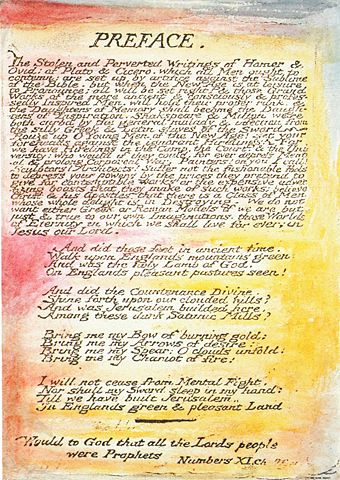 PREFACE.
The Stolen and Perverted Writings of Homer &
Ovid: of Plato & Cicero. which all Men ought to
contemn: are set up by artifice against the Sublime
of the Bible. but when the New Age is at leisure
to Pronounce; all will be set right: & those Grand
Works of the more ancient & consciously & profes-
sedly Inspired Men, will hold their proper rank, &
the Daughters of Memory shall become the Daugh-
ters of Inspiration. Shakspeare & Milton were
both curbd by the general malady & infection from
the silly Greek & Latin slaves of the Sword.
Rouze up O Young Men of the New Age! set your
foreheads against the ignorant Hirelings! For
we have Hirelings in the Camp, the Court, & the Uni-
versity: who would if they could, for ever depress Mental
& prolong Corporeal War. Painters! on you I call!
Sculptors! Architects! Suffer not the fashonable Fools
to depress your powers by the prices they pretend to
give for contemptible works or the expensive adver-
tizing boasts that they make of such works; believe
Christ & his Apostles that there is a Class of Men
whose whole delight is in Destroying. We do not
want either Greek or Roman Models if we are but
just & true to our own Imaginations, those Worlds
of Eternity in which we shall live for ever; in
Jesus our Lord.
And did those feet in ancient time.
Walk upon Englands mountains green:
And was the holy Lamb of God,
On Englands pleasant pastures seen!
And did the Countenance Divine,
Shine forth upon our clouded hills?
And was Jerusalem builded here,
Among these dark Satanic Mills?
Bring me my Bow of burning gold:
Bring me my Arrows of desire:
Bring me my Spear: O clouds unfold:
Bring me my Chariot of fire!
I will not cease from Mental Fight,
Nor shall my Sword sleep in my hand:
Till we have built Jerusalem,
In Englands green & pleasant Land
Would to God that all the Lords people
were Prophets Numbers XI. ch